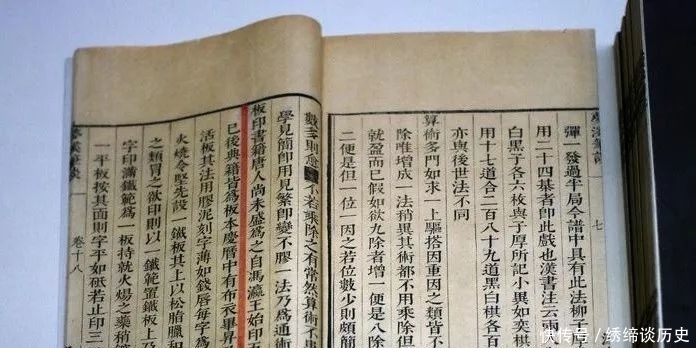 夢溪筆談 七
彈一發過半局今譜中具有此法柳子
用二十四棊者卽此戲也漢書注云兩
白黑子各六枚與子厚所記小異如奕棊
用十七道合二百八十九道黑白棊各
亦與後世法不同
算術多門如求一上驅搭因重因之類皆
除唯增成一法稍異其術都不用乘除但
就盈而已假如欲九除者增一便是八除
二便是但一位一因之若位數少則頗簡
數多則愈 不若乘除之有常然算術不
學見簡卽用見繁卽變不膠一法乃爲通術
板印書籍唐人尚未盛爲之自馮瀛王始印
已後典籍皆爲板本慶曆中有布衣畢昇
活板其法用膠泥刻字薄如錢唇每字爲
火燒令堅先設一鐵板其上以松脂臘和
之類冒之欲印則以一鐵範置鐵板上
字印滿鐵範爲一板持就火煬之藥稍
一平板按其面則字平如砥若止印三
夢溪筆談 卷十八
快传号 / 绣缔谈历史